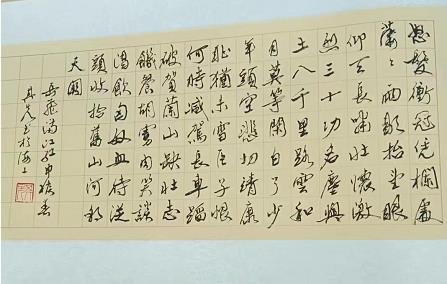 怒髮衝冠憑欄處
蕭々雨歇抬望眼
仰天長嘯壯懷激
烈三十功名塵與
土八千里路雲和
月莫等閒白了少
年頭空悲切靖康
恥猶未雪臣子恨
何時滅駕長車踏
破賀蘭山缺壯志
饑餐胡虜肉笑談
渴飲匈奴血待從
頭收拾舊山河朝
天闕
岳飛滿江紅
於海上